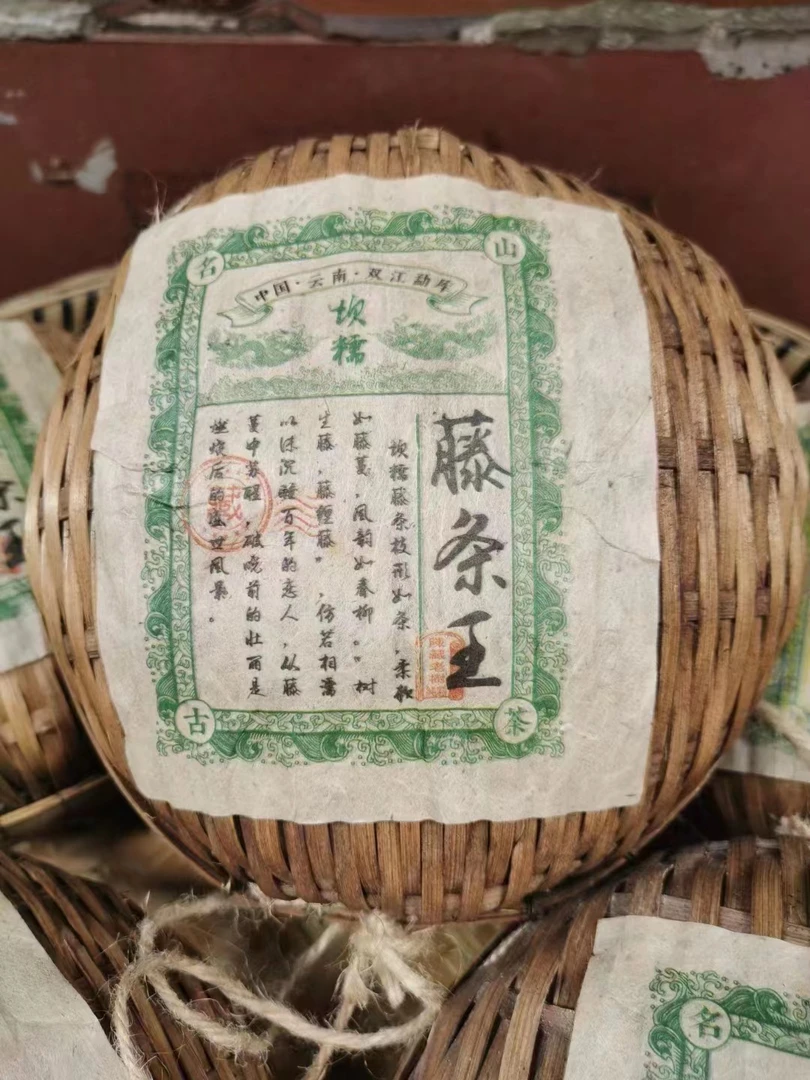 名 山
中国·云南·双江勐库
坎糯
藤条王
坎糯藤条枝形如条，柔软
如藤蔓，风韵如春柳。“树
生藤，藤缠藤”，仿若相濡
以沫沉睡百年的恋人，从藤
蔓中苏醒，破晓前的壮丽是
燃烧后的盛世风景。
藏
古 茶
条王
名